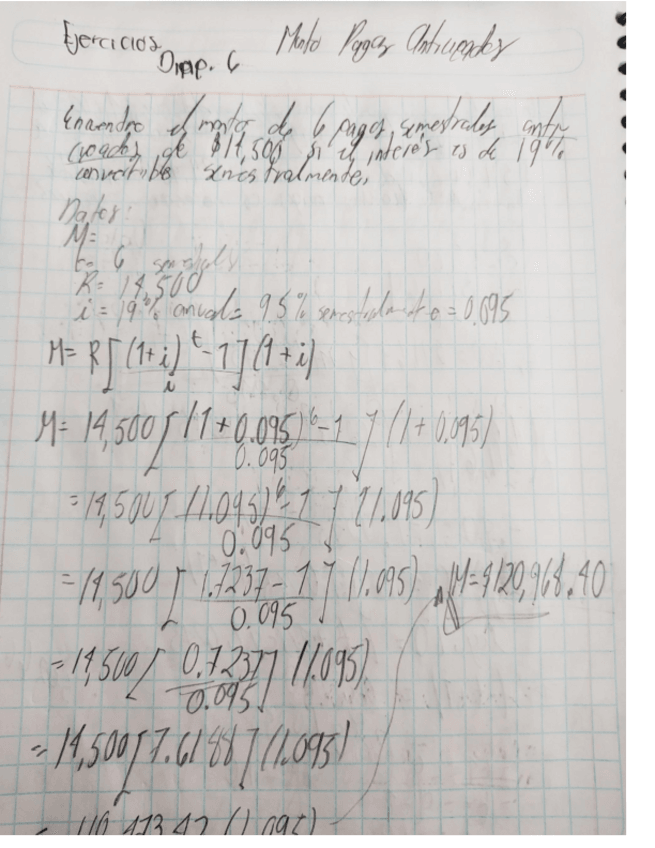 Ejercicios Monto Pagos Anticipados
Diap. 6
Encuentre el monto de 6 pagos semestrales anti-
cipados de $14,500 si el interés es de 19%
convertible semestralmente.
Datos:
M=
t= 6 semestrales
R= 14,500
i = 19% anual = 9.5% semestralmente = 0.095
M= R[(1+i)^t - 1 / i](1+i)
M= 14,500[(1+0.095)^6 - 1 / 0.095](1+0.095)
= 14,500[(1.095)^6 - 1 / 0.095](1.095)
= 14,500[1.7237 - 1 / 0.095](1.095) M=$120,968.40
= 14,500[0.7237 / 0.095](1.095)
= 14,500[7.6188](1.095)
= 110,473.42 (1.095)